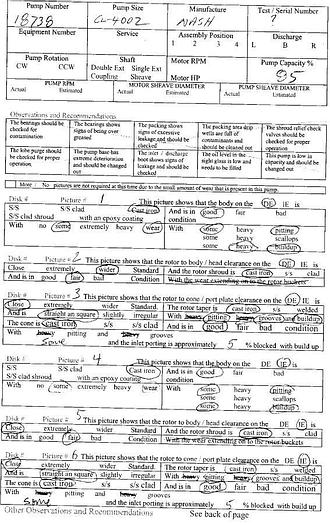 Pump Number Pump Size Manufacture Test / Serial Number
18738 CL-4002 NASH ?
Equipment Number Service Assembly Position Discharge
1 2 3 4 L B R
Pump Rotation Shaft Motor RPM Pump Capacity %
CW CCW Double Ext Single Ext Motor HP 95
Coupling Sheave
PUMP RPM MOTOR SHEAVE DIAMETER PUMP SHEAVE DIAMETER
Actual Estimated Actual Estimated Actual Estimated
Observations and Recommendations
The bearings should be checked for contamination
The bearings shows signs of being over greased
The packing shows signs of excessive leakage and should be checked
The packing area drip wells are full of contaminants and should be cleaned out
The shroud relief check valves should be checked for proper operation
The lobe purge should be checked for proper operation
The pump base has extreme deterioration and should be changed out
The inlet / discharge boot shows signs of leakage and should be checked
The oil level in the sight glass is low and needs to be filled
This pump is low in capacity and should be changed out
More / No pictures are not required at this time due to the small amount of wear that is present in this pump.
Disk # Picture # 1 This picture shows that the body on the DE IE is
S/S S/S clad Cast iron And is in good fair bad
S/S clad shroud with an epoxy coating condition
With no some heavy wear some heavy pitting
some heavy scallops
some heavy buildup
Disk # Picture # 2 This picture shows that the rotor to body / head clearance on the DE IE is
Close extremely wider Standard And the rotor shroud is cast iron s/s clad
And is in good fair bad Condition With the wear extending on to the rotor buckets
Disk # Picture # 3 This picture shows that the rotor to cone / port plate clearance on the DE IE is
Close extremely wider Standard The rotor taper is cast iron s/s welded
And is straight an square slightly irregular With heavy pitting heavy grooves and buildup
The cone is cast iron s/s s/s clad And is in good fair bad condition
With heavy pitting and heavy grooves
Some and the inlet porting is approximately 5 % blocked with build up
Disk # Picture # 4 This picture shows that the body on the DE IE is
S/S S/S clad Cast iron And is in good fair bad
S/S clad shroud with an epoxy coating condition
With no some extremely heavy wear some heavy pitting
some heavy scallops
some heavy buildup
Disk # Picture # 5 This picture shows that the rotor to body / head clearance on the DE IE is
Close extremely wider Standard And the rotor shroud is cast iron s/s clad
And is in good fair bad Condition With the wear extending on to the rotor buckets
Disk # Picture # 6 This picture shows that the rotor to cone / port plate clearance on the DE IE is
Close extremely wider Standard The rotor taper is cast iron s/s welded
And is straight an square slightly irregular With heavy pitting heavy grooves and buildup
The cone is cast iron s/s s/s clad And is in good fair bad condition
With heavy pitting and heavy grooves
Some and the inlet porting is approximately 5 % blocked with build up
Other Observations and Recommendations See back of page